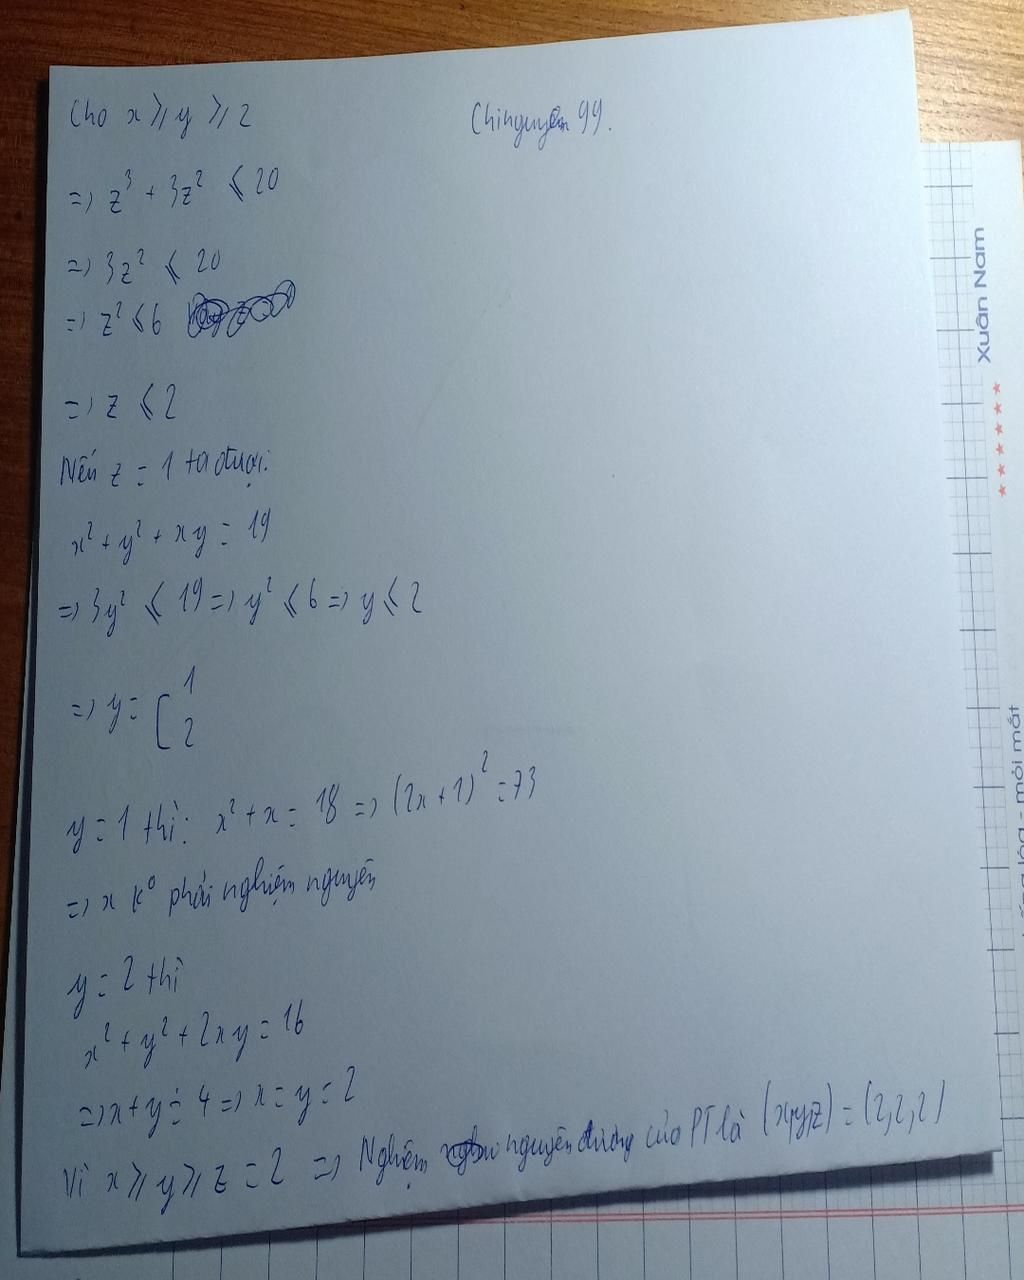 Cho x ⩾ y ⩾ z
Chinguyên 99.
=> z³ + 3z² ⩽ 20
=> 3z² ⩽ 20
=> z² ⩽ 6
=> z ⩽ 2
Nếu z = 1 ta được:
x² + y² + xy = 19
=> 3y² ⩽ 19 => y² ⩽ 6 => y ⩽ 2
=> y = [ 1
2
y = 1 thì: x² + x = 18 => (2x + 1)² = 73
=> x k° phải nghiệm nguyên
y = 2 thì
x² + y² + 2xy = 16
=> x + y = 4 => x = y = 2
Vì x ⩾ y ⩾ z = 2 => Nghiệm nguyên dương của PT là (x,y,z) = (2,2,2)
Xuân Nam